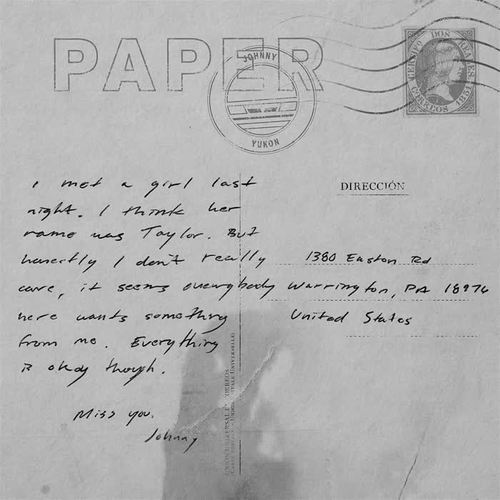 PAPER
JOHNNY
YUKON
DOS REALES
CORREOS 1851
i met a girl last
night. I think her
name was Taylor. But
honestly I don't really
care, it seems everybody
here wants something
from me. Everything
is okay though.
Miss you.
Johnny
DIRECCIÓN
1380 Easton Rd
Warrington, PA 18976
United States